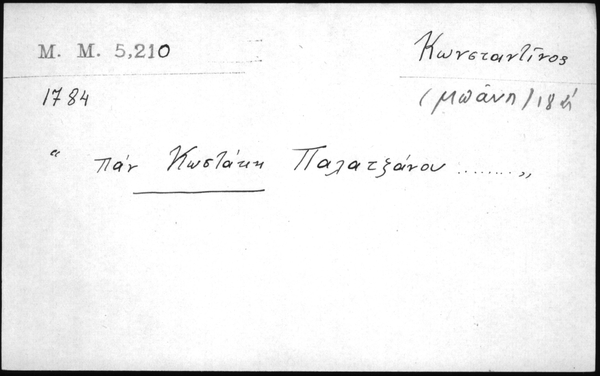 M. M. 5,210
Κωνσταντῖνος
1784
(μπάνη) 18
“ πάν Κωστάκη Παλατζάνου ........,,